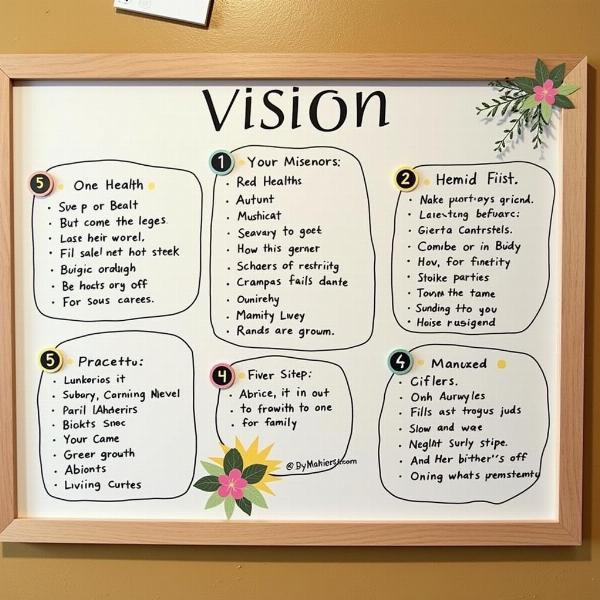 Vision
5 One Health
Sue p or Bealt
But come the leges.
Lase heir worel,
Fil sale! net hot steek
Buigic ordugh
Be hosts ory off
For sous carees.
1 Your Misenors:
Red Healths
Autunt
Mushicat
Seavary to goet
How this gerner
Schaers of restriitg
Crampas fails dante
Ounirehy
Mamity Livey
Rands are growm.
2 Hemid Fiist.
Nake puort›ays gricnd.
Gierta Cantrstels.
Combe or in Budy
Hov, for finetity
Stoike parties
Tovm the tame
Sunding tto you
Hoise rusigend
5 Pracettu:
Lunkorios it
Subary, Corning Nievel
Paril lAhderirs
Biokts Snoc
Your Came
Greer grouth
Abionts
Liviing Curtes
4 Fiver Sitep:
Abrice, it in out
to frowith to one
for family
4 Manuxed
Ciflers.
Onh Aurwyles
Fills ast trogus juds
Slow and wae
Neglht Surly stipe.
And Her bither''s off
Oning whats pemstemty